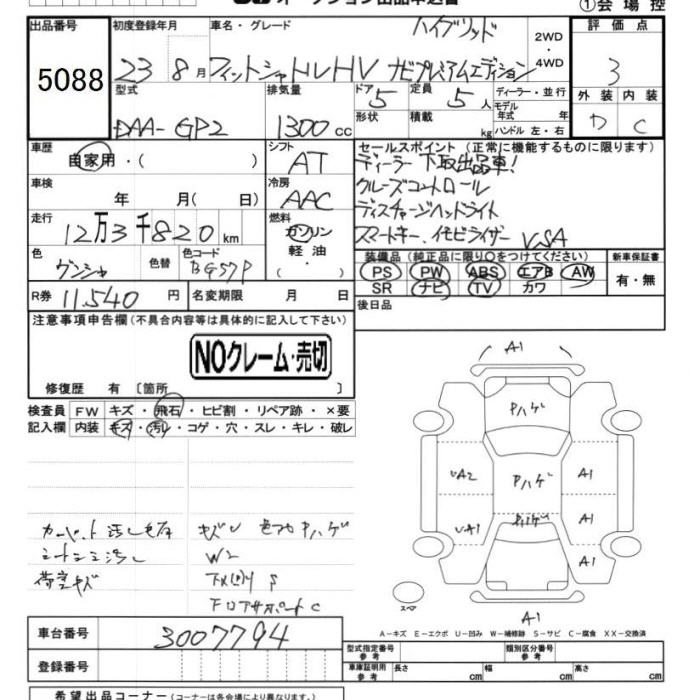 オークション出品申込書
①会場控
出品番号 初度登録年月 車名・グレード ハイブリッド 2WD・4WD 評価点
5088 23 8月 フィットシャトルHV ナビプレミアムエディション 3
型式 排気量 ドア 5 定員 5人 ディーラー・並行 外装 内装
DAA-GP2 1300cc 形状 積載 kg モデル年式 年 ハンドル 左・右 C
車歴 自家用・( ) シフト AT セールスポイント(正常に機能するものに限ります)
ディーラー下取出品車!
車検 年 月(日) 冷房 AAC クルーズコントロール
走行 12万3千820km 燃料 ガソリン 軽油・( ) ディスチャージヘッドライト
スマートキー、イモビライザー VSA
色 色替 色コード BG57P 装備品(純正品に限り○をつけてください) 新車保証書
PS PW ABS エアB AW 有・無
SR ナビ TV カワ
R券 11,540円 名変期限 月 日 後日品
注意事項申告欄(不具合内容等は具体的に記入して下さい)
NOクレーム・売切
修復歴 有〔箇所 〕
検査員記入欄 FW キズ・飛石・ヒビ割・リペア跡・×要
内装 キズ・汚レ・コゲ・穴・スレ・キレ・破レ
A1
Pハゲ
UA2 Pハゲ A1
UA1 Pハゲ A1
A1
A1
スペア
キズU 色アセ Pハゲ
W2
荷室キズ 下メ(回)り S
フロアサポート C
A-キズ E-エクボ U-凹み W-補修跡 S-サビ C-腐食 XX-交換済
車台番号 3007794
型式指定番号参考 類別区分番号参考
登録番号 車庫証明用参考 長さ cm 幅 cm 高さ cm
希望出品コーナー(コーナーは各会場により異なります。)